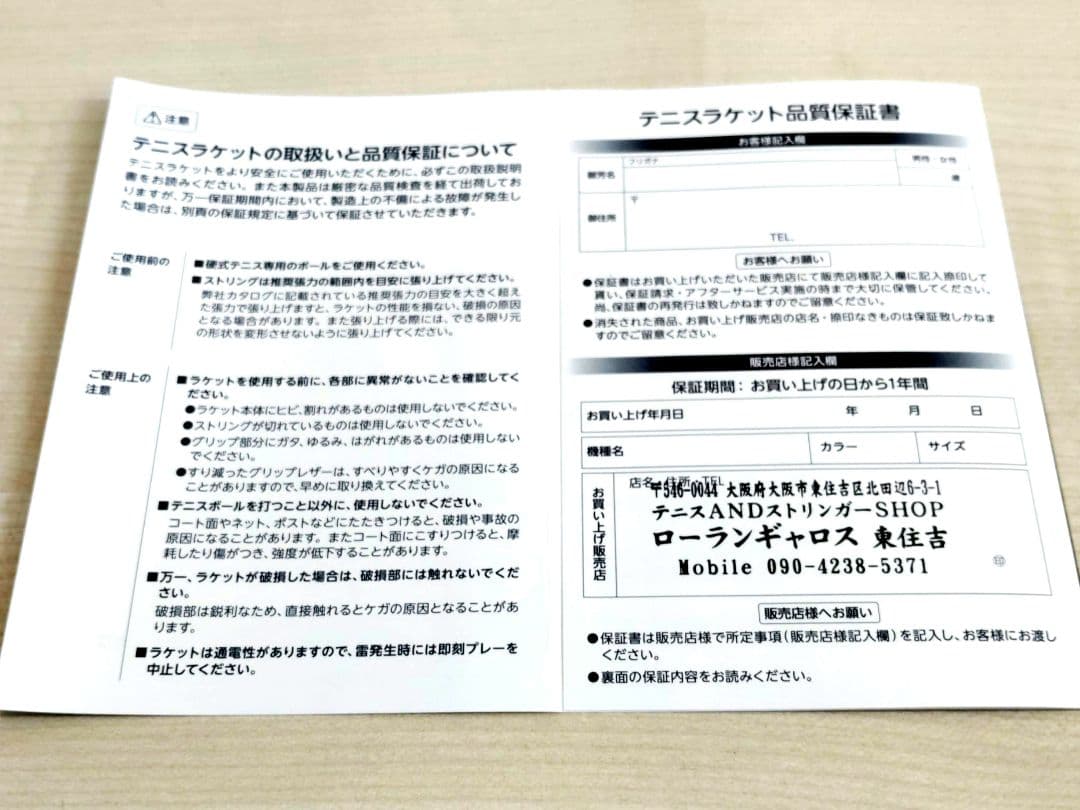 注意
テニスラケットの取扱いと品質保証について
テニスラケットをより安全にご使用いただくために、必ずこの取扱説明
書をお読みください。また本製品は厳密な品質検査を経て出荷してお
りますが、万一保証期間内において、製造上の不備による故障が発生し
た場合は、別頁の保証規定に基づいて保証させていただきます。
ご使用前の
注意
■硬式テニス専用のボールをご使用ください。
■ストリングは推奨張力の範囲内を目安に張り上げてください。
弊社カタログに記載されている推奨張力の目安を大きく超え
た張力で張り上げますと、ラケットの性能を損ない、破損の原因
となる場合があります。また張り上げる際には、できる限り元
の形状を変形させないように張り上げてください。
ご使用上の
注意
■ラケットを使用する前に、各部に異常がないことを確認してく
ださい。
●ラケット本体にヒビ、割れがあるものは使用しないでください。
●ストリングが切れているものは使用しないでください。
●グリップ部分にガタ、ゆるみ、はがれがあるものは使用しない
でください。
●すり減ったグリップレザーは、すべりやすくケガの原因になる
ことがありますので、早めに取り換えてください。
■テニスボールを打つこと以外に、使用しないでください。
コート面やネット、ポストなどにたたきつけると、破損や事故の
原因になることがあります。またコート面にこすりつけると、摩
耗したり傷がつき、強度が低下することがあります。
■万一、ラケットが破損した場合は、破損部には触れないでくだ
さい。
破損部は鋭利なため、直接触れるとケガの原因となることがあ
ります。
■ラケットは通電性がありますので、雷発生時には即刻プレーを
中止してください。
テニスラケット品質保証書
お客様記入欄
フリガナ
御芳名
男性・女性
歳
御住所
〒
TEL.
お客様へお願い
●保証書はお買い上げいただいた販売店にて販売店様記入欄に記入捺印して
貰い、保証請求・アフターサービス実施の時まで大切に保管してください。
尚、保証書の再発行は致しかねますのでご留意ください。
●消失された商品、お買い上げ販売店の店名・捺印なきものは保証致しかねま
すのでご留意ください。
販売店様記入欄
保証期間：お買い上げの日から1年間
お買い上げ年月日 年 月 日
機種名 カラー サイズ
お買い上げ販売店
店名・住所・TEL
〒546-0044 大阪府大阪市東住吉区北田辺6-3-1
テニスANDストリンガーSHOP
ローランギャロス 東住吉
Mobile 090-4238-5371
印
販売店様へお願い
●保証書は販売店様で所定事項(販売店様記入欄)を記入し、お客様にお渡し
ください。
●裏面の保証内容をお読みください。